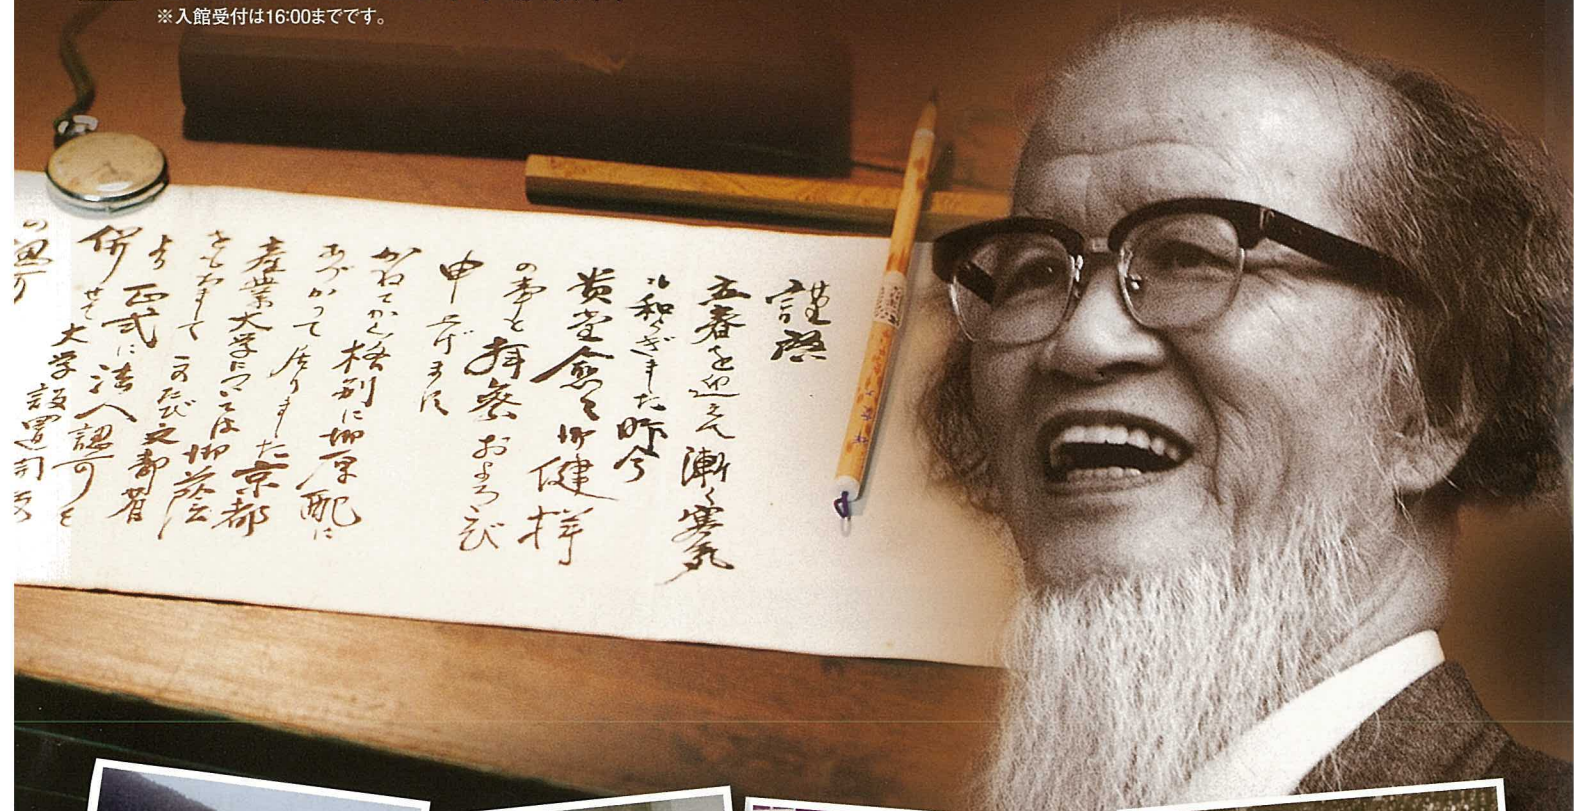 ※入館受付は16:00までです。
謹啓
立春を迎えて漸く寒気
も和らぎました昨今
貴堂愈々御健祥
の事と拝察およろこび
申上げます
かねてから格別に御厚配に
あづかって居りました京都
産業大学については御蔭
さまをもちまして このたび文部省
より正式に法人認可を
併せて大学設置
の認可